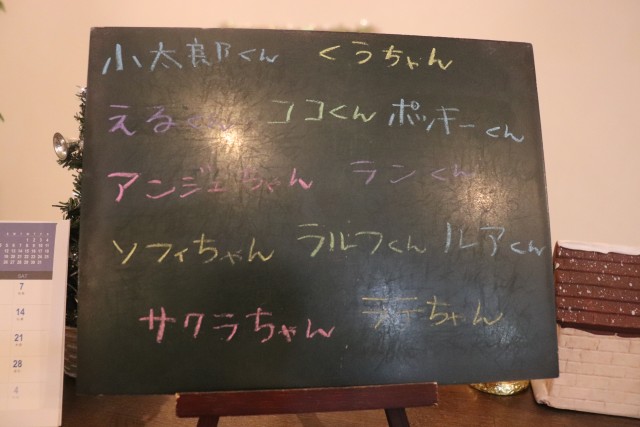 小太郎くん くうちゃん
えるくん ココくん ポッキーくん
アンジェちゃん ランくん
ソフィちゃん ラルフくん ルアくん
サクラちゃん ちゃん
SAT
7
14
21
28
4